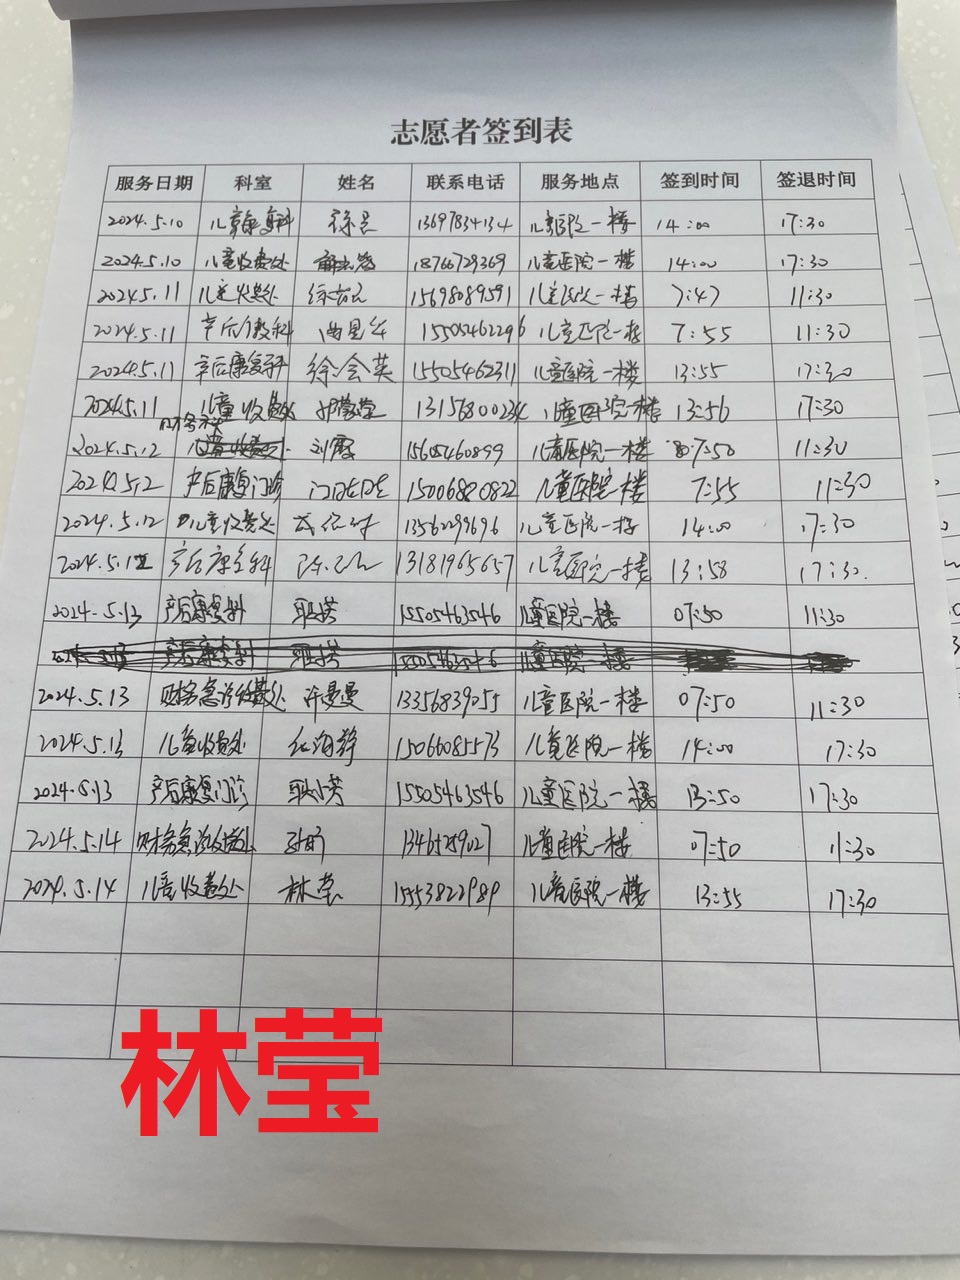 志愿者签到表
服务日期 科室 姓名 联系电话 服务地点 签到时间 签退时间
2024.5.10 儿童康复科 13697834134 儿童医院一楼 14:00 17:30
2024.5.10 儿童收费处 18766729369 儿童医院一楼 14:00 17:30
2024.5.11 15698089591 儿童医院一楼 7:47 11:30
2024.5.11 15505462296 儿童医院一楼 7:55 11:30
2024.5.11 产后康复科 徐会英 15505462311 儿童医院一楼 13:55 17:30
2024.5.11 儿童收费处 儿童医院一楼 13:56 17:30
2024.5.12 15605460899 儿童医院一楼 07:50 11:30
2024.5.12 产后康复门诊 15006820822 儿童医院一楼 7:55 11:30
2024.5.12 儿童收费处 13562099696 儿童医院一楼 14:00 17:30
2024.5.12 产后康复科 13181965657 儿童医院一楼 13:58 17:30
2024.5.13 产后康复科 15505463546 儿童医院一楼 07:50 11:30
2024.5.13 财务急诊收费处 许曼曼 13356839055 儿童医院一楼 07:50 11:30
2024.5.13 儿童收费处 15066085573 儿童医院一楼 14:00 17:30
2024.5.13 产后康复门诊 15505463546 儿童医院一楼 13:50 17:30
2024.5.14 财务急诊收费处 13465289027 儿童医院一楼 07:50 11:30
2024.5.14 儿童收费处 林莹 15553822989 儿童医院一楼 13:55 17:30
林莹